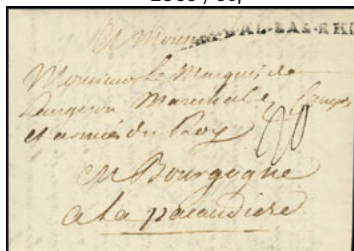 A Monsieur
Monsieur Le Marquis de
Langeron Marechal
et armées du Roy
20
en Bourgogne
a la pacaudiere